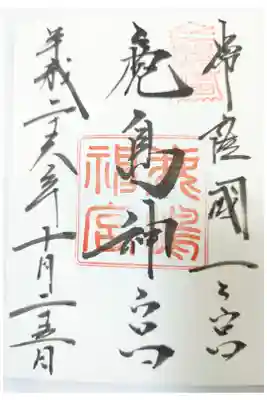 常陸國一之宮
鹿島神宮
鹿島
神宮
平成二十六年十月二十五日